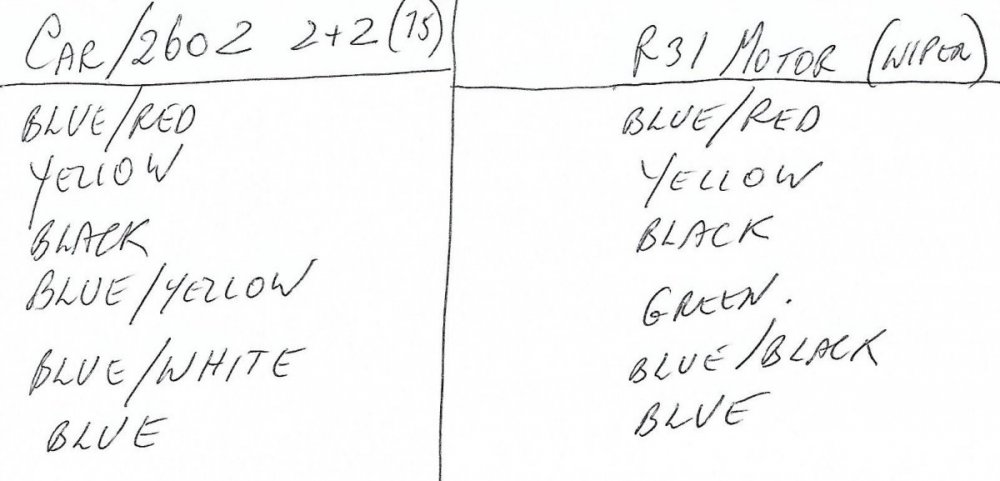 CAR/260Z 2+2 (75) R31 MOTOR (WIPER)
BLUE/RED BLUE/RED
YELLOW YELLOW
BLACK BLACK
BLUE/YELLOW GREEN.
BLUE/WHITE BLUE/BLACK
BLUE BLUE